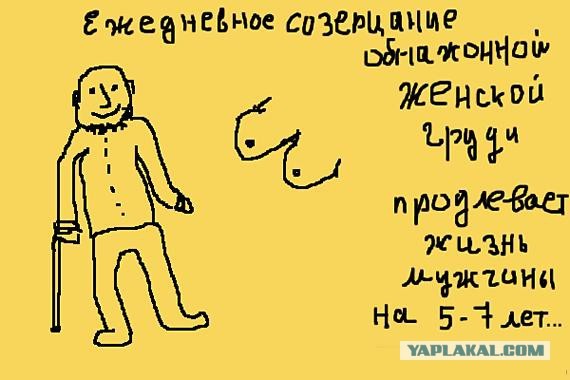 Ежедневное созерцание
обнажонной
женской
груди
продлевает
жизнь
мужчины
на 5-7 лет...
YAPLAKAL.COM